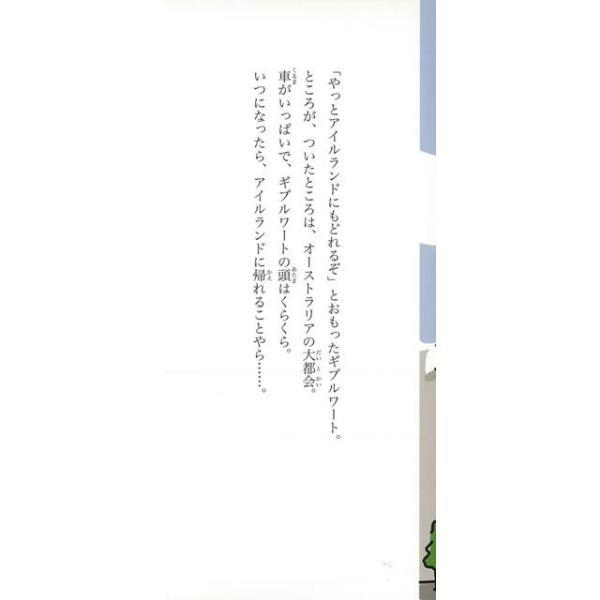 「やっとアイルランドにもどれるぞ」とおもったギブルワート。
ところが、ついたところは、オーストラリアの大都会。
車がいっぱいで、ギブルワートの頭はくらくら。
いつになったら、アイルランドに帰れることやら……。